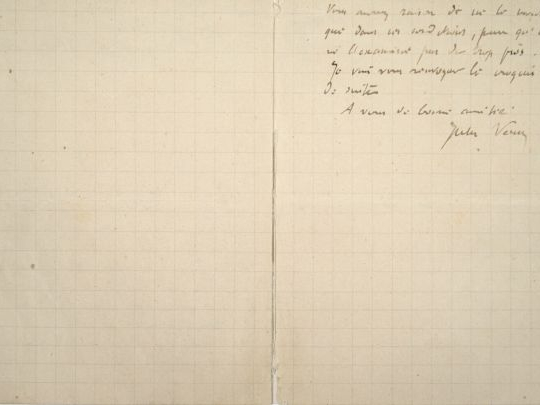 Vous aurez raison de ne le
que dans ces conditions, pour qu'
ne l'examine pas de trop près.
Je vais vous renvoyer le croquis
de suite
A vous de bonne amitié
Jules Verne